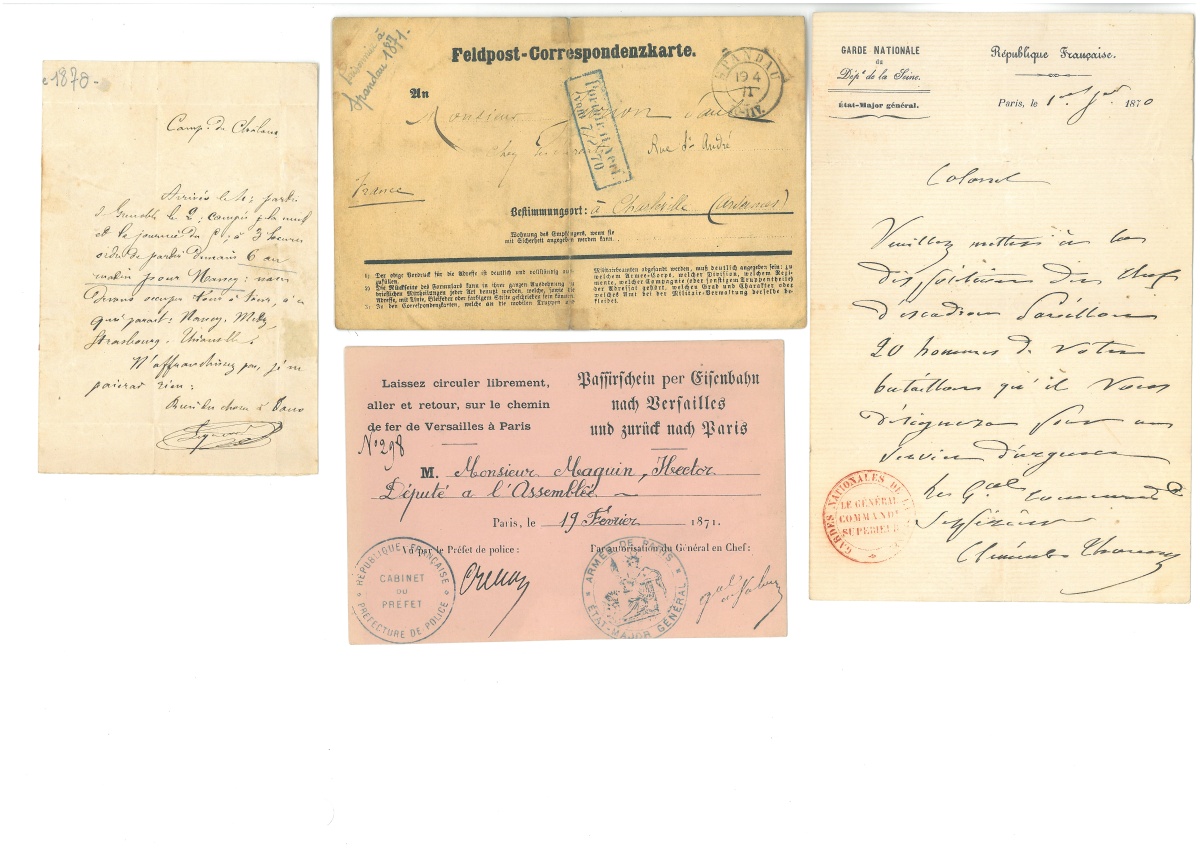 e 1870-
Camp de Châlons
Arrivés le 1er; partis
de Grenoble le 2; campés p. la nuit
et la journée du 5; à 3 heures
ordre de partir demain 6 au
matin pour Nancy: nous
devons occuper tour à tour, à ce
qui parait: Nancy, Metz,
Strasbourg, Thionville.
N'affranchissez pas, je ne
paierai rien:
à tous
prisonnier à
Spandau 1871.
Feldpost-Correspondenzkarte.
SPANDAU
19 4
71
An
Monsieur
Portofr. lt. Verf.
vom 7/7 70
chez
Rue St André
France
Bestimmungsort: à Charleville (Ardennes)
Wohnung des Empfängers, wenn sie
mit Sicherheit angegeben werden kann.
1) Der obige Vordruck für die Adresse ist deutlich und vollständig auszufüllen.
2) Die Rückseite des Formulars kann in ihrer ganzen Ausdehnung zu
brieflichen Mittheilungen jeder Art benutzt werden, welche, sowie die
Adresse, mit Tinte, Bleifeder oder farbigem Stifte geschrieben sein können.
3) In den Correspondenzkarten, welche an mobile Truppen oder
Militairbeamten abgesandt werden, muß deutlich angegeben sein: zu
welchem Armee-Corps, welcher Division, welchem Regimente,
welcher Compagnie (oder sonstigem Truppentheile)
der Adressat gehört, welchen Grad und Charakter oder
welches Amt bei der Militair-Verwaltung derselbe bekleidet.
Laissez circuler librement,
aller et retour, sur le chemin
de fer de Versailles à Paris
No 298
Passirschein per Eisenbahn
nach Versailles
und zurück nach Paris
M. Monsieur Maguin, Hector
Député a l'Assemblée
Paris, le 19 Février 1871.
Vu par le Préfet de police:
Par autorisation du Général en Chef:
RÉPUBLIQUE FRANÇAISE
CABINET
DU
PRÉFET
PRÉFECTURE DE POLICE
ARMÉE DE PARIS
ÉTAT-MAJOR GÉNÉRAL
GARDE NATIONALE
du
Dépt de la Seine.
État-Major général.
République Française.
Paris, le 1er 1870
Colonel
Veuillez mettre à la
disposition du chef
d'escadron
20 hommes de votre
bataillon qu'il vous
désignera pour un
service d'urgence
Le Gal Commandt
Supérieur
Clément Thomas
GARDES NATIONALES DE LA
LE GÉNÉRAL
COMMANDT
SUPÉRIEUR